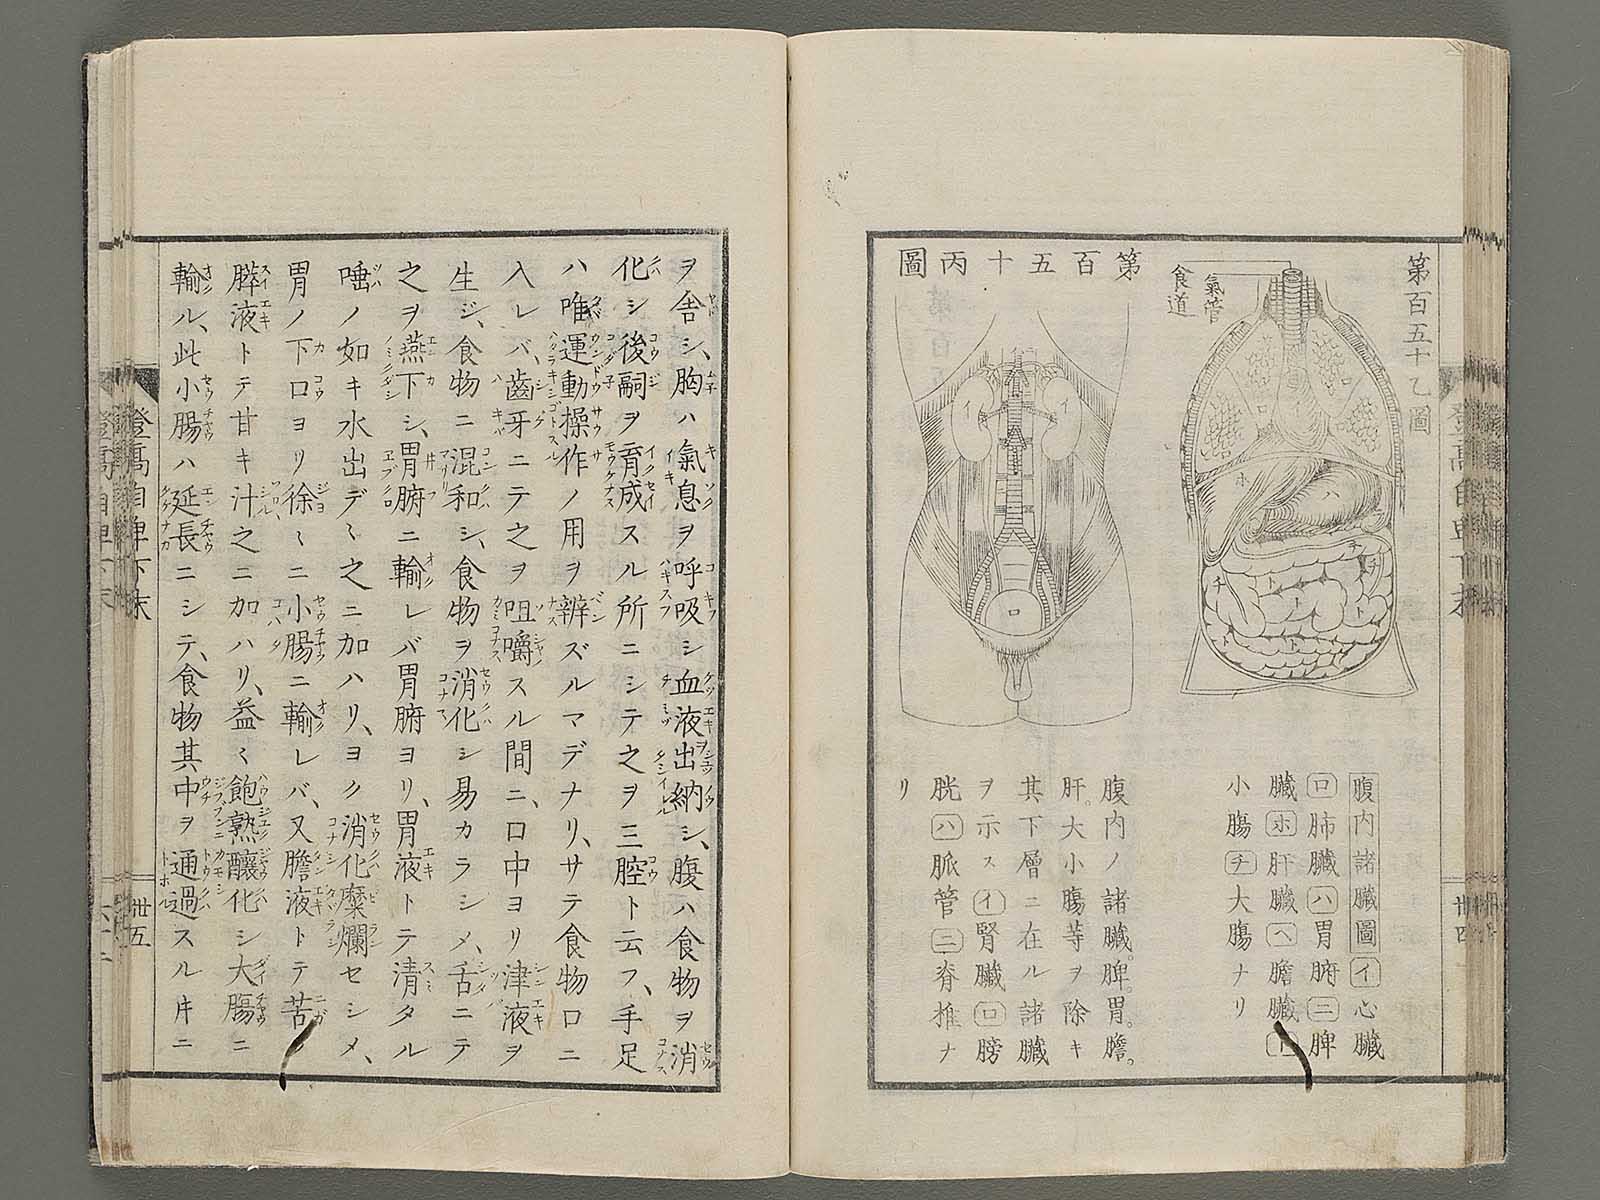 第百五十乙圖
氣管
食道
腹内諸臟圖㋑心臟
㋺肺臟㋩胃腑㊁脾
臟㋭肝臟㋬膽臟
小腸㋠大腸ナリ
第百五十丙圖
腹内ノ諸臟。脾。胃。膽。
肝。大小腸等ヲ除キ
其下層ニ在ル諸臟
ヲ示ス㋑腎臟㋺膀
胱㋩脈管㊁脊椎ナ
リ
ヲ舍シ、胸ハ氣息ヲ呼吸シ血液出納シ、腹ハ食物ヲ消
化シ後嗣ヲ育成スル所ニシテ之ヲ三腔ト云フ、手足
ハ唯運動操作ノ用ヲ辨ズルマデナリ、サテ食物口ニ
入レバ、齒牙ニテ之ヲ咀嚼スル間ニ、口中ヨリ津液ヲ
生ジ、食物ニ混和シ、食物ヲ消化シ易カラシメ、舌ニテ
之ヲ燕下シ、胃腑ニ輸レバ胃腑ヨリ、胃液トテ清タル
唾ノ如キ水出デヽ之ニ加ハリ、ヨク消化糜爛セシメ、
胃ノ下口ヨリ徐〻ニ小腸ニ輸レバ、又膽液トテ苦
膵液トテ甘キ汁之ニ加ハリ、益〻飽熟釀化シ大腸ニ
輸ル、此小腸ハ延長ニシテ、食物其中ヲ通過スル㐧ニ
登高自卑下末
丗五
丗四